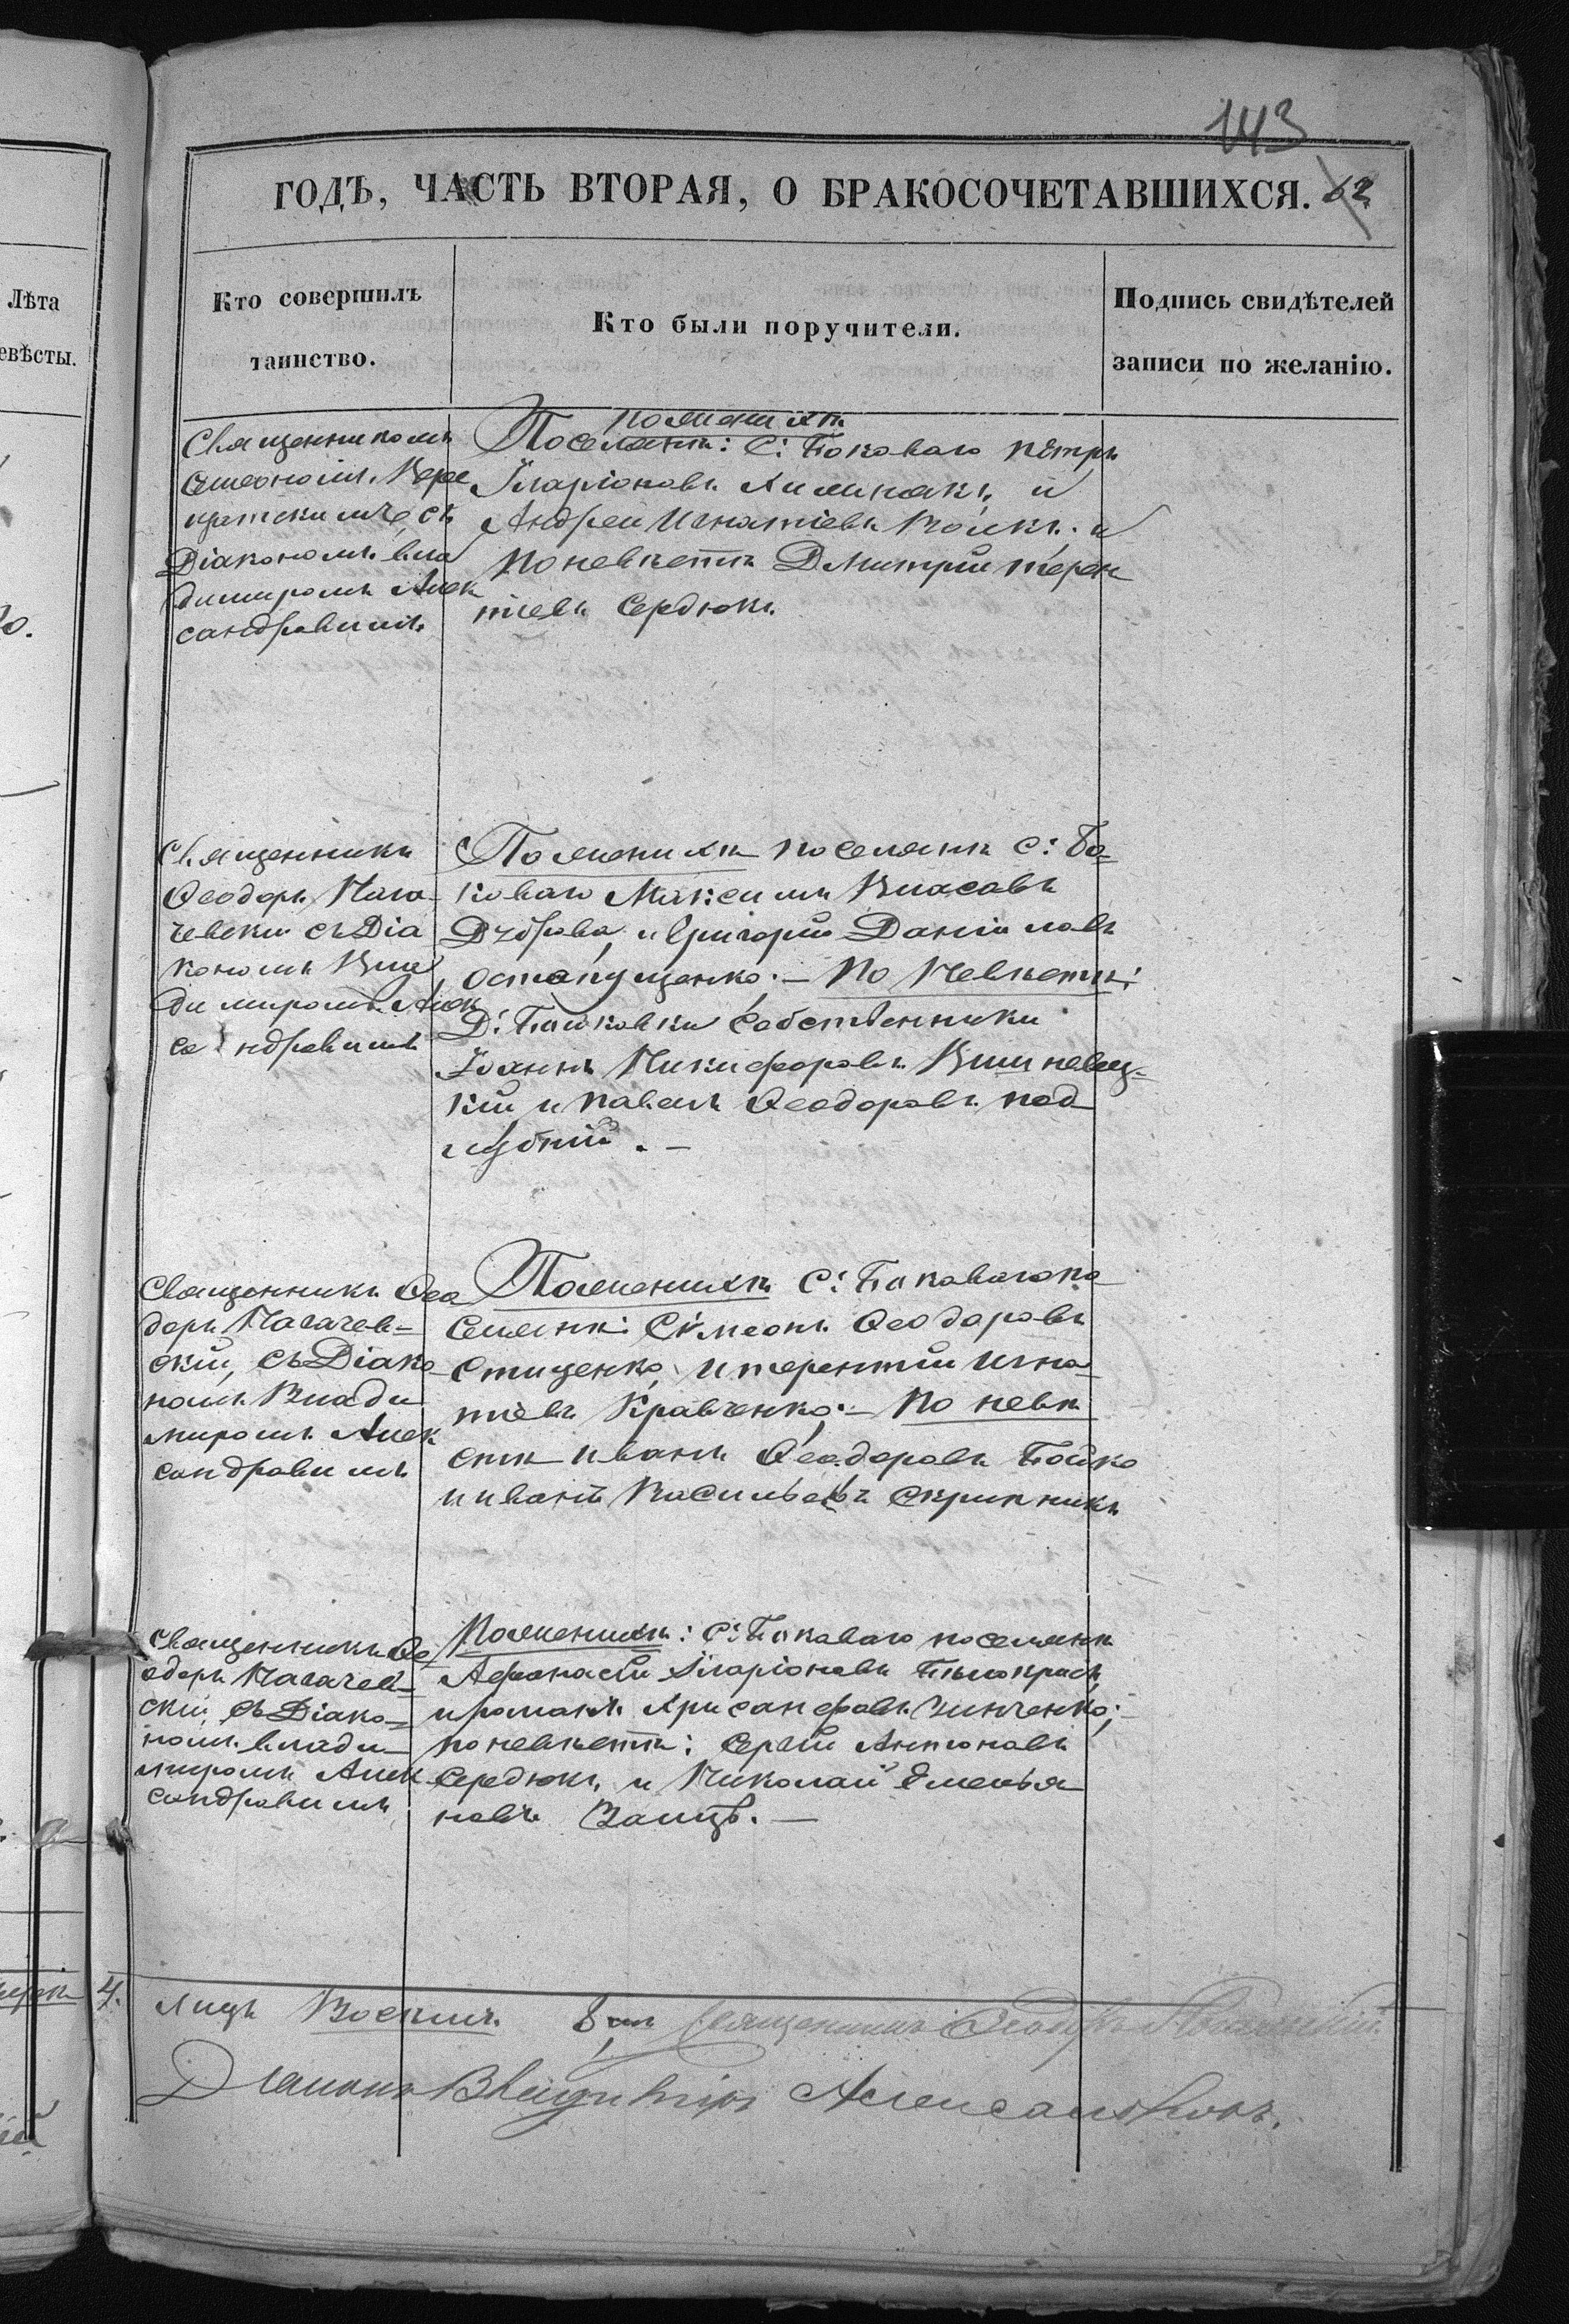 143
ГОДЪ, ЧАСТЬ ВТОРАЯ, О БРАКОСОЧЕТАВШИХСЯ. 62
Лѣта
евѣсты.
Кто совершилъ
таинство.
Кто были поручители.
Подпись свидѣтелей
записи по желанію.
Священникомъ
Симеономъ
съ
Діакономъ Вла
димиромъ Алек
сандровимъ
по женихѣ
Поселянѣ: С: Боковаго Петръ
Иларіоновъ и
Андрей Игнатіевъ Волкъ: и
по невѣстѣ Дмитрій Терен
тіевъ Сердюкъ
Священникъ
Ѳеодоръ Нога
чевскій съ Діа
кономъ Вла
димиромъ Алек
сандровимъ
По женихѣ поселянѣ С: Бо
коваго Максимъ Власовъ
Дуброва, и Григорій Даніиловъ
Остапущенко; — По Невѣстѣ:
Д: Бойковки Собственники
Іоаннъ Никифоровъ Вишневец
кій и Павелъ Ѳеодоровъ Под
лубній. —
Священникъ Ѳео
доръ Ногачев=
скій, съ Діако
номъ Влади
миромъ Алек
сандровимъ
По женихѣ С: Боковаго по
селянѣ: Сѵмеонъ Ѳеодоровъ
Стиценко, и Терентій Игна
тіевъ Кравченко; — По невѣ
стѣ Иванъ Ѳеодоровъ Бойко
и Иванъ Васильевъ Скрипникъ
Священникъ Ѳе
одоръ Ногачев=
скій, съ Діако=
номъ Влади
миромъ Алек
сандровимъ
По женихѣ: С: Боковаго поселянѣ
Афанасій Иларіоновъ Бѣлокрысъ,
и романъ Хрисанфовъ Зинченко;
по невѣстѣ: Сергій Антоновъ
Сердюкъ, и Николай Емелья
новъ Заяцъ. —
4.
лицъ Восемъ. 8 Священникъ Ѳеодоръ Ногачевскій.
Діаконъ Владиміръ Александровъ.